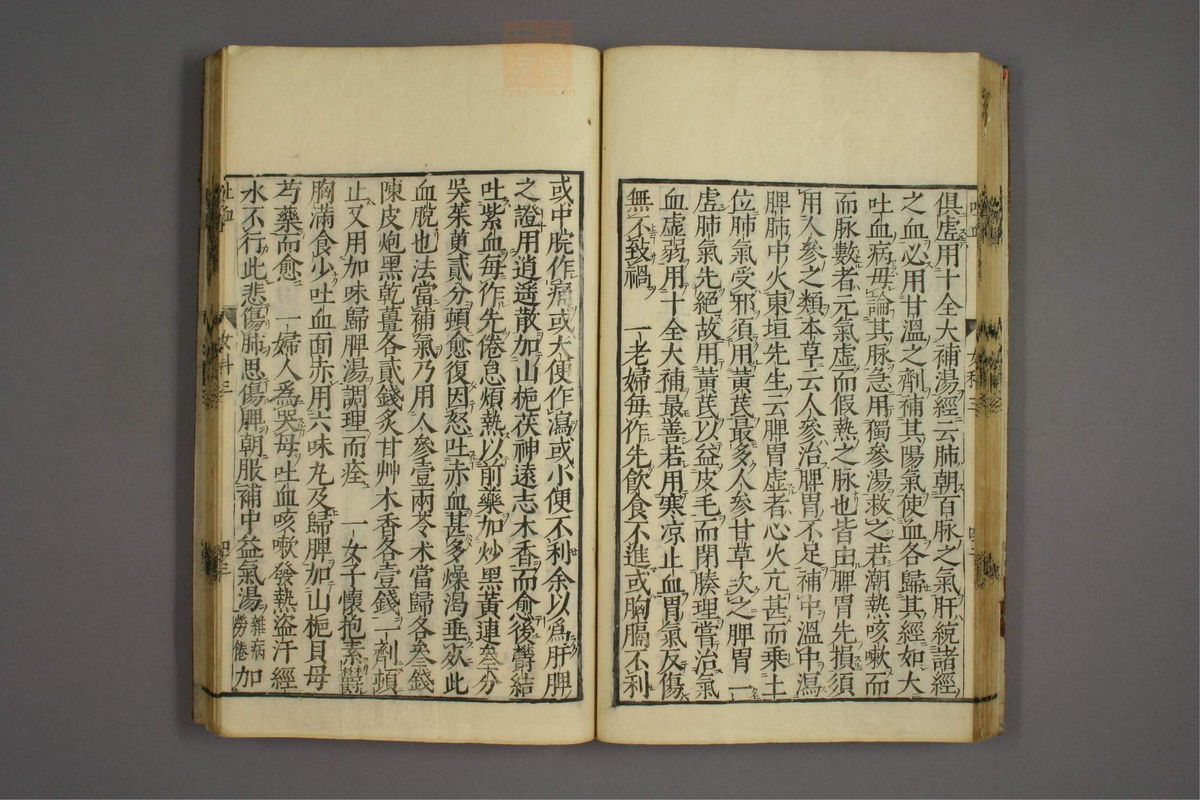 俱虛用十全大補湯經云肺朝百脉之氣肝統諸經
之血必用甘溫之劑補其陽氣使血各歸其經如大
吐血病毋論其脉急用獨參湯救之若潮熱咳嗽而
而脉數者元氣虛而假熱之脉也皆由脾胃先損須
用人參之類本草云人參治脾胃不足補中溫中瀉
脾肺中火東垣先生云脾胃虛者心火亢甚而乘土
位肺氣受邪須用黃芪最多人參甘草次之脾胃一
虛肺氣先絕故用黃芪以益皮毛而閉腠理嘗治氣
血虛弱用十全大補最善若用寒凉止血胃氣反傷
無不致禍 一老婦每作先飲食不進或胸膈不利
或中脘作痛或大便作瀉或小便不利余以爲肝脾
之證用逍遥散加山梔茯神遠志木香而愈後鬱結
吐紫血每作先倦怠煩熱以前藥加炒黑黃連叁分
吳茱萸貳分頓愈復因怒吐赤血甚多燥渴垂死此
血脫也法當補氣乃用人參壹兩苓术當歸各叁錢
陳皮炮黑乾薑各貳錢炙甘艸木香各壹錢一劑頓
止又用加味歸脾湯調理而痊 一女子懷抱素鬱
胸滿食少吐血面赤用六味丸及歸脾加山梔貝母
芍藥而愈 一婦人爲哭母吐血咳嗽發熱盜汗經
水不行此悲傷肺思傷脾朝服補中益氣湯雜病勞倦加
吐血
女科三
四三